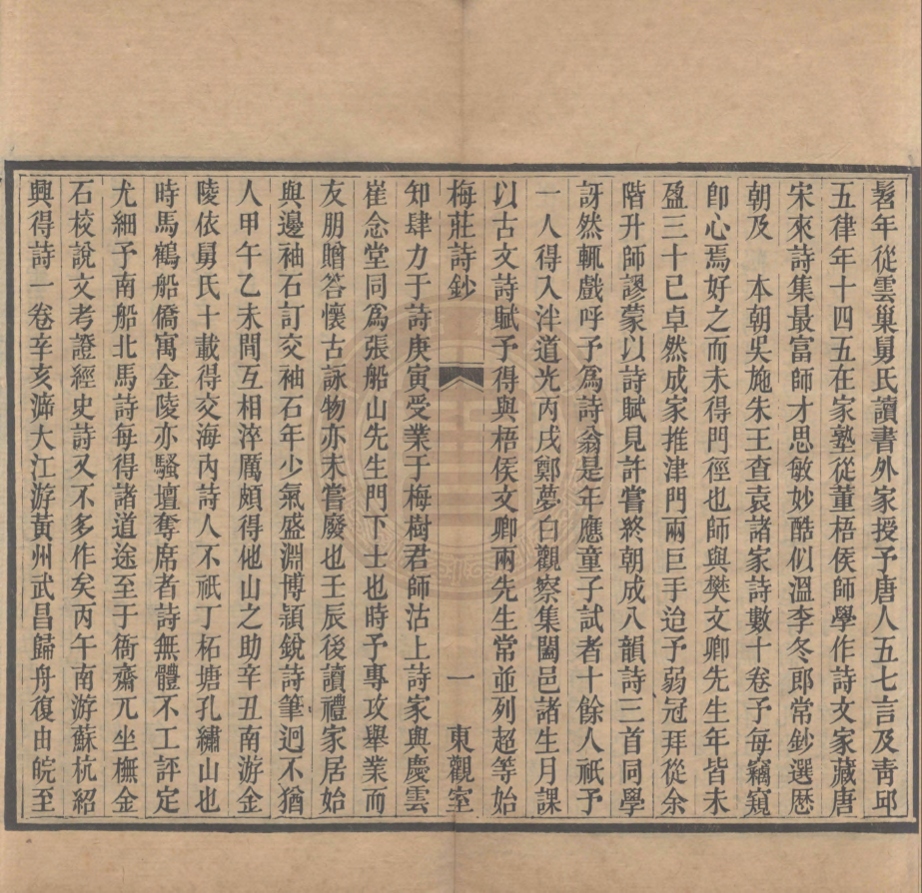 髫年從雲巢舅氏讀書外家授予唐人五七言及靑邱
五律年十四五在家塾從董梧侯師學作詩文家藏唐
宋來詩集最富師才思敏妙酷似溫李冬郎常鈔選歷
朝及　本朝吳施朱王查袁諸家詩數十卷予每竊窺
卽心焉好之而未得門徑也師與樊文卿先生年皆未
盈三十已卓然成家推津門兩巨手迨予弱冠拜從余
階升師謬蒙以詩賦見許嘗終朝成八韻詩三首同學
訝然輒戲呼予爲詩翁是年應童子試者十餘人祇予
一人得入泮道光丙戌鄭夢白觀察集闔邑諸生月課
以古文詩賦予得與梧侯文卿兩先生常並列超等始
梅莊詩鈔　一　東觀室
知肆力于詩庚寅受業于梅樹君師沽上詩家與慶雲
崔念堂同爲張船山先生門下士也時予專攻舉業而
友朋贈答懷古詠物亦未嘗廢也壬辰後讀禮家居始
與邊袖石訂交袖石年少氣盛淵博穎銳詩筆迥不猶
人甲午乙未間互相淬厲頗得他山之助辛丑南游金
陵依舅氏十載得交海內詩人不祇丁柘塘孔繡山也
時馬鶴船僑寓金陵亦騷壇奪席者詩無體不工評定
尤細予南船北馬詩每得諸道途至于衙齋兀坐橅金
石校說文考證經史詩又不多作矣丙午南游蘇杭紹
興得詩一卷辛亥泝大江游黃州武昌歸舟復由皖至